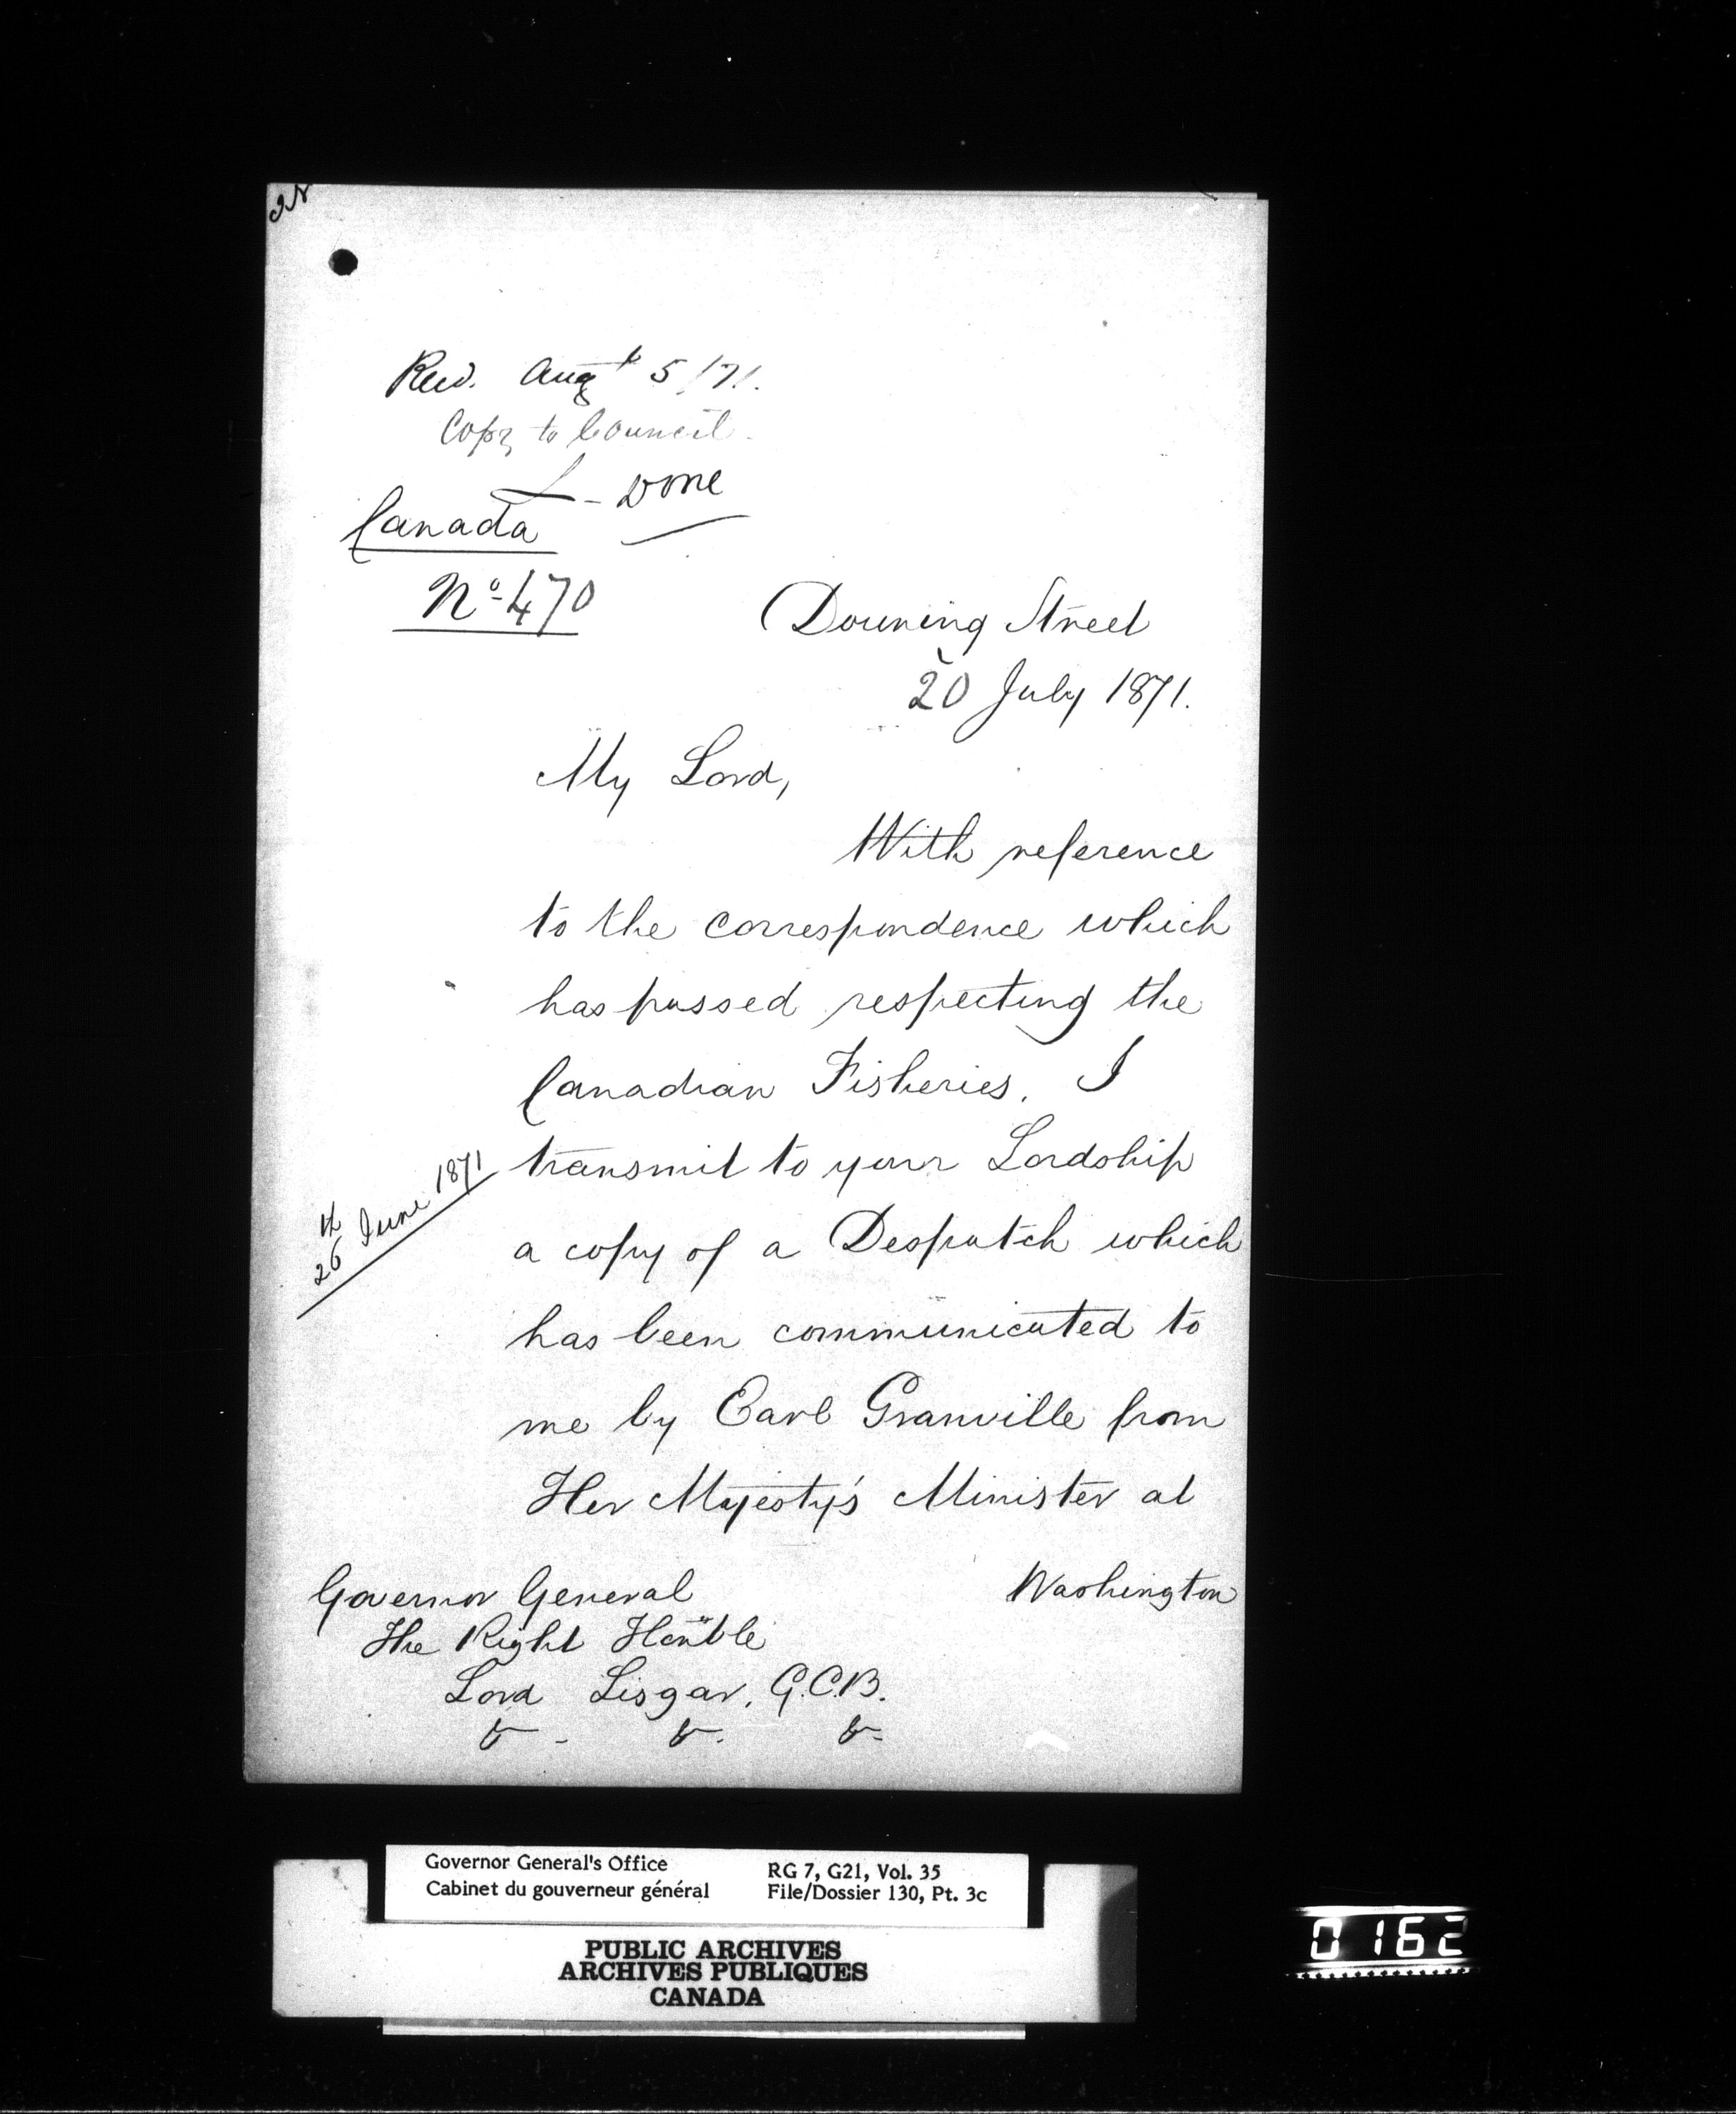 Recd. Augt 5/71.
Copy to Council.
L - Done
Canada
No. 470
Downing Street
20 July 1871.
My Lord,
With reference
to the correspondence which
has passed respecting the
Canadian Fisheries, I
transmit to your Lordship
26th June 1871
a copy of a Despatch which
has been communicated to
me by Earl Granville from
Her Majesty's Minister at
Washington
Governor General
The Right Honble
Lord Lisgar, G.C.B.
&. &. &.
Governor General's Office
Cabinet du gouverneur général
RG 7, G21, Vol. 35
File/Dossier 130, Pt. 3c
PUBLIC ARCHIVES
ARCHIVES PUBLIQUES
CANADA
0162